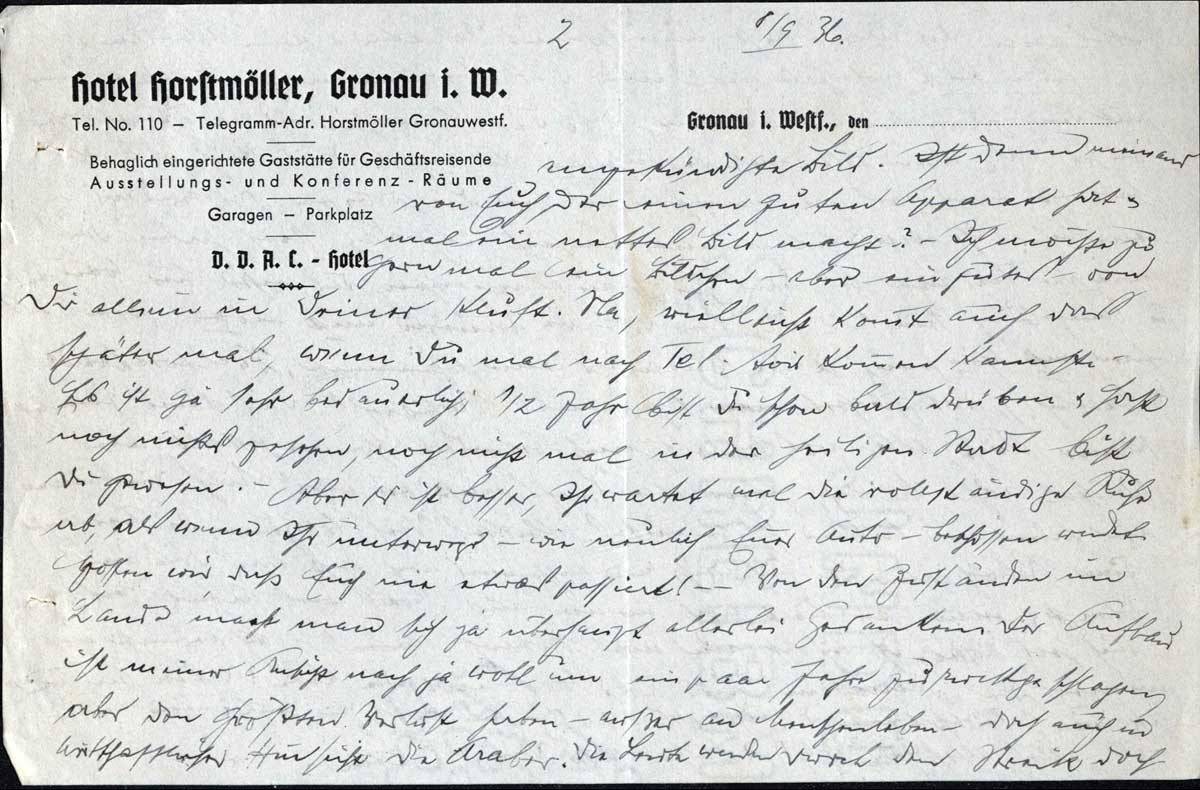 2
8/9 36.
Hotel Horstmöller, Gronau i. W.
Tel. No. 110 — Telegramm-Adr. Horstmöller Gronauwestf.
Gronau i. Westf., den
Behaglich eingerichtete Gaststätte für Geschäftsreisende
Ausstellungs- und Konferenz-Räume
Garagen — Parkplatz
D. D. A. C. - Hotel
angekündigte Bild. Ist denn niemand
von Euch der einen guten Apparat hat &
mal ein nettes Bild macht? – Ich möchte zu
gern mal ein Bildchen – aber ein gutes – von
Dir allein in Deiner Kluft. Na, vielleicht kommt auch das
später mal, wenn Du mal nach Tel. Aviv kommen kannst. –
Es ist ja sehr bedauerlich, 1/2 Jahr bist Du schon bald drüben & hast
noch nichts gesehen, noch nicht mal in der heiligen Stadt bist
Du gewesen. – Aber es ist besser, Ihr wartet mal die vollständige Ruhe
ab, als wenn Ihr unterwegs – wie neulich Euer Auto – beschossen werdet.
Hoffen wir daß Euch nie etwas passiert! – Von den Zuständen im
Lande macht man sich ja überhaupt allerlei Gedanken. Der Aufbau
ist meiner Ansicht nach ja wohl um ein paar Jahre zurückgeschlagen,
aber den größten Verlust haben – außer an Menschenleben – doch auch in
wirtschaftlicher Hinsicht die Araber. Die Leute werden durch den Streik doch